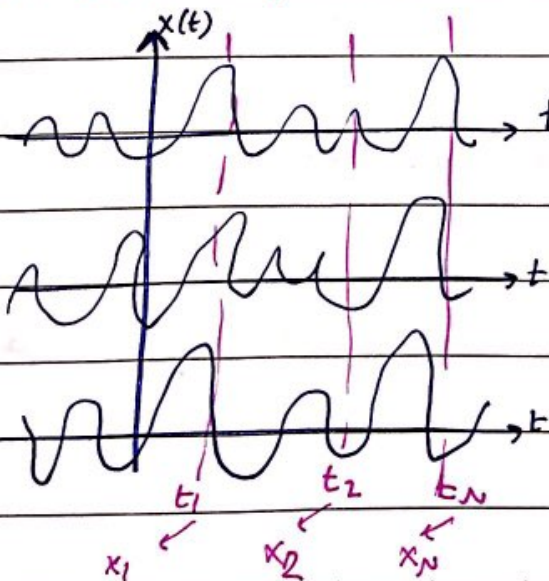 x(t)
t
t
t
t1 t2 tN
x1 x2 xN